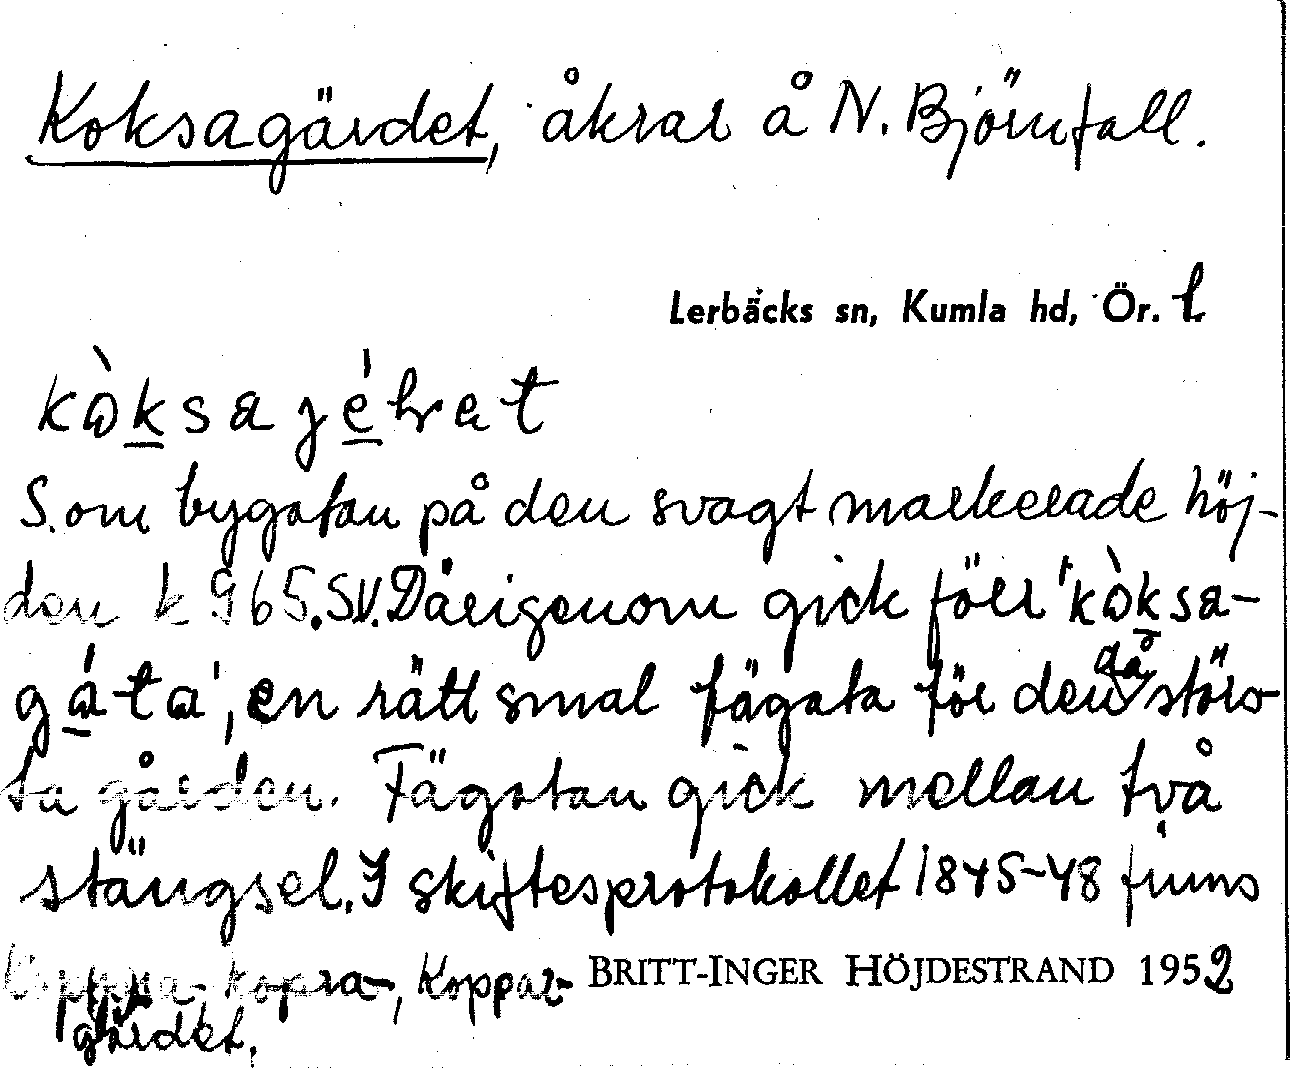 Koksagärdet, åkrar å N. Björnfall.
Lerbäcks sn, Kumla hd, Ör. l
kòksajéḷret
S.om bygatan på den svagt markerade höj-
den k 965.SV. Därigenom gick förr 'kòksa-
gáta', en rätt smal fägata för den då störs-
ta gården. Fägatan gick mellan två
stängsel. I skiftesprotokollet 1845-48 finns
kopra-, Koppar-
BRITT-INGER HÖJDESTRAND 1952
gärdet.